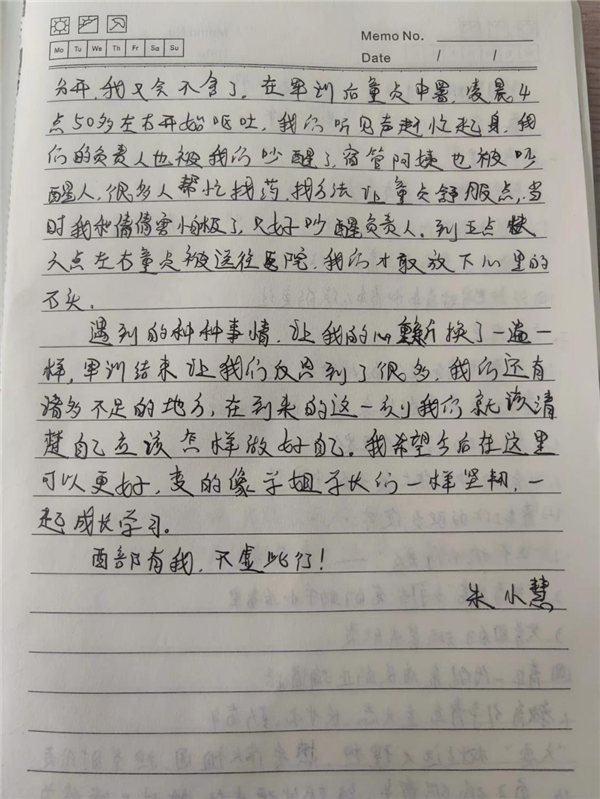 Memo No.
Mo Tu We Th Fr Sa Su
Date / /
分开,我又舍不舍了。在军训后童贞中暑,凌晨4
点50多左右开始呕吐,我们听见声赶忙起身,我
们的负责人也被我们吵醒了,宿管阿姨也被吵
醒人,很多人帮忙找药,找方法让童贞舒服点,当
时我和倩倩害怕极了,只好吵醒负责人。到五点快
六点左右童贞被送往医院,我们才敢放下心里的
石头。
遇到的种种事情,让我的心重新换了一遍一
样,军训结束让我们反思到了很多,我们还有
诸多不足的地方,在到来的这一刻我们就该清
楚自己应该怎样做好自己。我希望今后在这里
可以更好,变的像学姐学长们一样坚韧,一
起成长学习。
酉部有我,不虚此行!
朱小慧